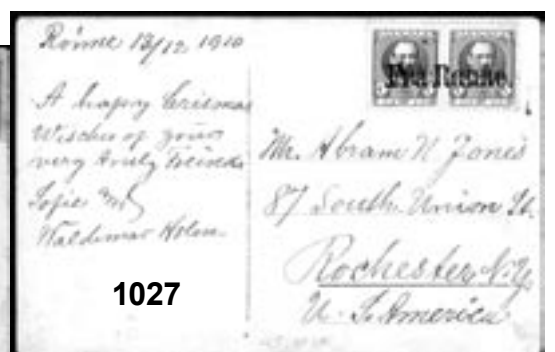 Rönne 13/12 1910
A happy Crismas
Wisches of your
very truly Freinds
Sofie and
Waldemar Holm
Fra Rønne.
Mr. Abram N Jones
87 South Union St.
Rochester, N.Y.
U. S. America
1027